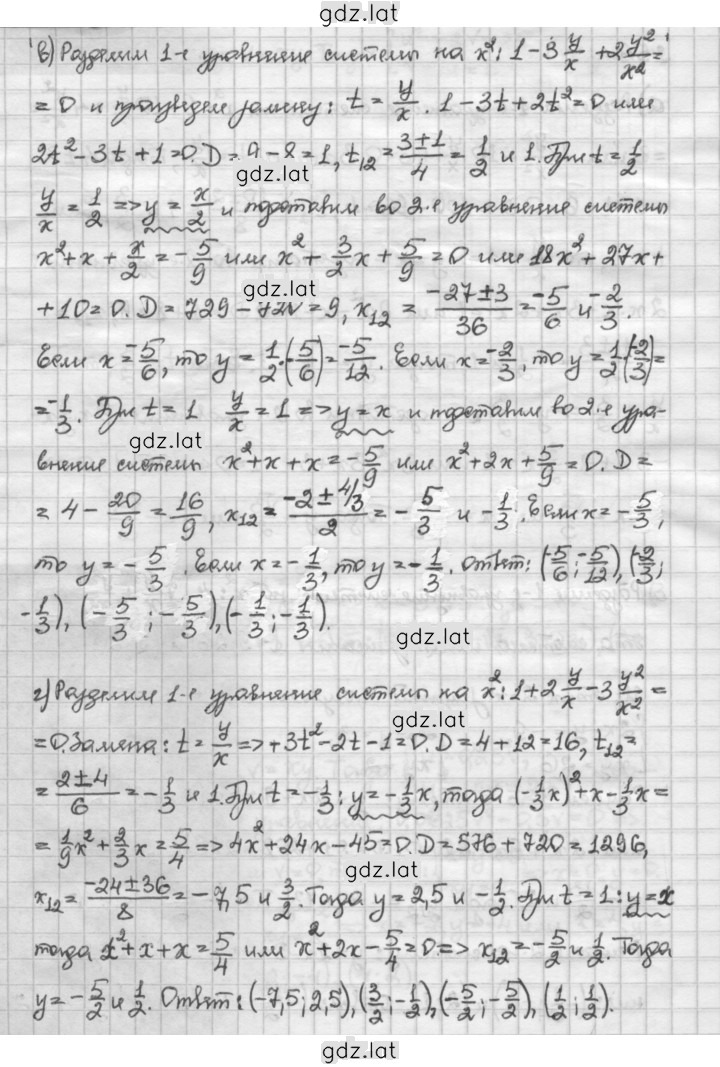 gdz.lat
в) Разделим 1-е уравнение системы на x²: 1 - 3 y/x + 2 y²/x² =
= 0 и произведем замену: t = y/x. 1 - 3t + 2t² = 0 или
2t² - 3t + 1 = 0. D = 9 - 8 = 1, t₁₂ = (3±1)/4 = 1/2 и 1. При t = 1/2
gdz.lat
y/x = 1/2 => y = x/2 и подставим во 2-е уравнение системы
x² + x + x/2 = -5/9 или x² + 3/2 x + 5/9 = 0 или 18x² + 27x +
gdz.lat
+ 10 = 0. D = 729 - 720 = 9, x₁₂ = (-27±3)/36 = -5/6 и -2/3.
Если x = -5/6, то y = 1/2·(-5/6) = -5/12. Если x = -2/3, то y = 1/2·(-2/3) =
= -1/3. При t = 1 y/x = 1 => y = x и подставим во 2-е ура-
gdz.lat
внение системы x² + x + x = -5/9 или x² + 2x + 5/9 = 0. D =
= 4 - 20/9 = 16/9, x₁₂ = (-2 ± 4/3)/2 = -5/3 и -1/3. Если x = -5/3,
то y = -5/3. Если x = -1/3, то y = -1/3. Ответ: (-5/6; -5/12), (-2/3;
-1/3), (-5/3; -5/3), (-1/3; -1/3).
gdz.lat
г) Разделим 1-е уравнение системы на x²: 1 + 2 y/x - 3 y²/x² =
gdz.lat
= 0. Замена: t = y/x => +3t² - 2t - 1 = 0. D = 4 + 12 = 16, t₁₂ =
= (2±4)/6 = -1/3 и 1. При t = -1/3: y = -1/3 x, тогда (-1/3 x)² + x - 1/3 x =
= 1/9 x² + 2/3 x = 5/4 => 4x² + 24x - 45 = 0. D = 576 + 720 = 1296,
gdz.lat
x₁₂ = (-24±36)/8 = -7,5 и 3/2. Тогда y = 2,5 и -1/2. При t = 1: y = x
тогда x² + x + x = 5/4 или x² + 2x - 5/4 = 0 => x₁₂ = -5/2 и 1/2. Тогда
gdz.lat
y = -5/2 и 1/2. Ответ: (-7,5; 2,5), (3/2; -1/2), (-5/2; -5/2), (1/2; 1/2).
gdz.lat